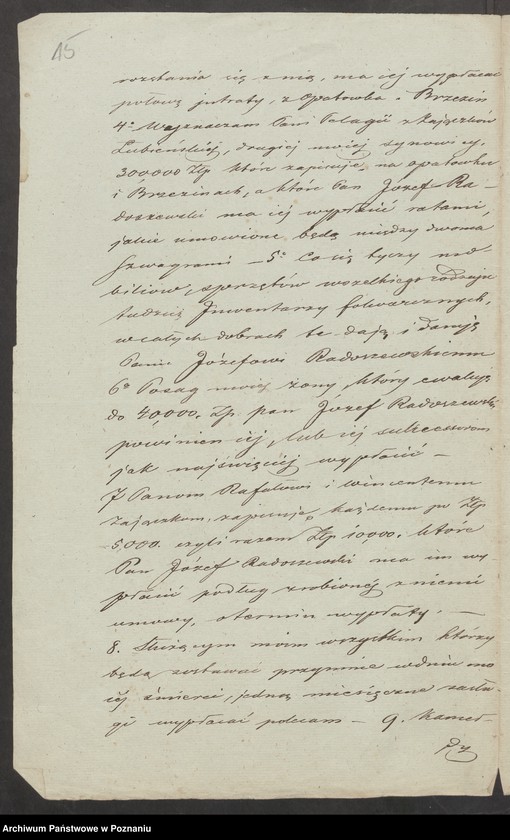 15
rozstania się z nią, ma jej wypłacać
połowę intraty, z Opatowka i Brzezin
4º Wyznaczam Pani Pelagii z Zajączków
Lubieńskiej, drugiej mojej synowicy,
300000 Zlp które zapisuję na Opatówku
i Brzezinach, a które Pan Józef Ra-
doszewski ma jej wypłacić ratami,
jakie umówione będą między dwoma
szwagrami – 5º Co się tyczy mo-
biliów, sprzętów wszelkiego rodzaju
tudzież Inwentarzy folwarcznych,
w całych dobrach te daję i daruję
Panu Józefowi Radoszewskiemu
6º Posag mojej żony, który
do 40,000. Zp. pan Józef Radoszewski
powinien jej, lub jej sukcessorom
jak najświęciej wypłacić –
7 Panom Rafałowi i Wincentemu
Zajączkom, zapisuję każdemu po Zlp
5,000. czyli razem Zlp 10,000. które
Pan Józef Radoszewski ma im wy-
płacić podług zrobionej z niemi
umowy, o termin wypłaty. –
8. Służącym moim wszystkim którzy
będą zostawać przy mnie w dniu mo-
jej śmierci, jedną miesięczną zasłu-
gę wypłacać polecam – 9. Kamer-
Archiwum Państwowe w Poznaniu